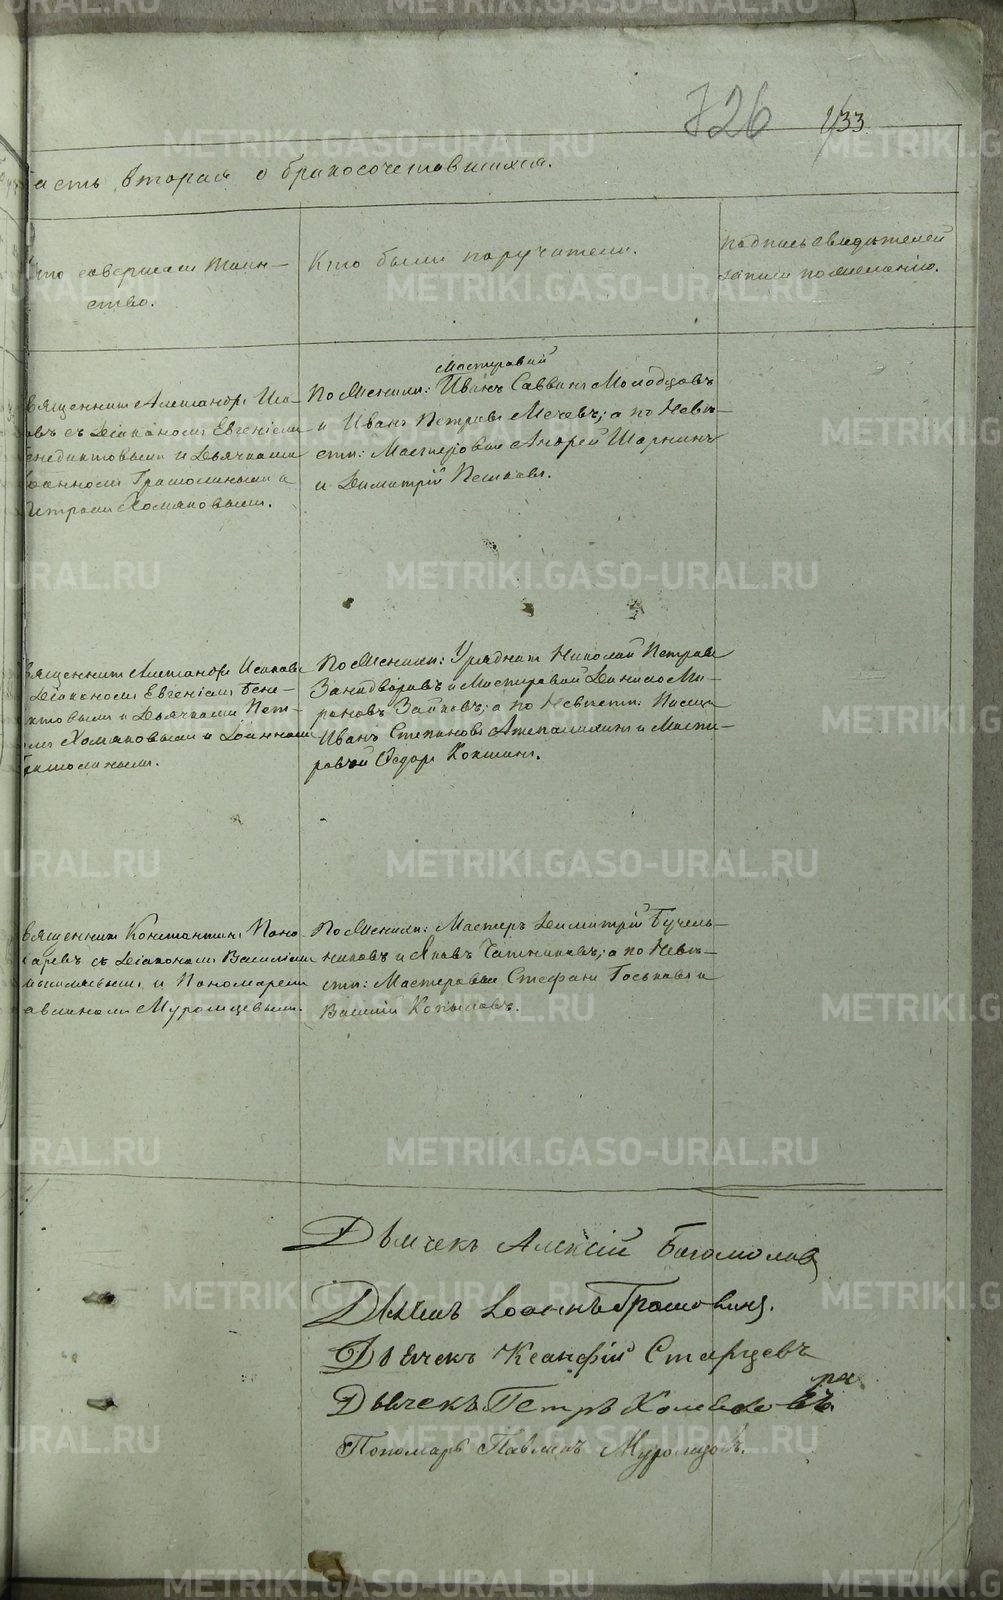 726 133
асть вторая о бракосочетавшихся.
то совершал таин-
ство.
Кто были поручители.
подпись свидѣтелей
записи по желанію.
вященникъ Александръ Иса-
овъ съ Діакономъ Евгеніемъ
енедиктовымъ и Дьячками
оанномъ Грамолинымъ и
Петромъ Хомяковымъ.
Мастеровый
По Женихѣ: Иванъ Саввинъ Молодцовъ
и Иванъ Петровъ Мечевъ; а по Невѣ-
стѣ: Мастеровые Андрей Шаркинъ
и Димитрій Пешковъ.
вященникъ Александръ Исаковъ
Діакономъ Евгеніемъ Бене-
ктовымъ и Дьячками Пет-
омъ Хомяковымъ и Іоанномъ
По Женихѣ: Урядникъ Николай Петровъ
Занадворовъ и Мастеровой Данило Ми-
роновъ Зайковъ; а по Невѣстѣ:
Иванъ Степановъ и Масте-
ровой Ѳедоръ Кокшинъ.
вященникъ Константинъ Поно-
аревъ съ Діакономъ Василіемъ
и Пономаремъ
авлиномъ Муромцевымъ.
По Женихѣ: Мастеръ Димитрій Бучель-
никовъ и Яковъ; а по Невѣ-
стѣ: Мастеровые Стефанъ Госьковъ и
Василій Копыловъ.
Дьячекъ Алексій Богомолов
Дьячекъ Іоаннъ Грамолинъ.
Дьячекъ Ксанфій Старцевъ
Дьячекъ Петръ Хомяковъ
Пономарь Павлинъ Муромцовъ.
METRIKI.GASO-URAL.RU